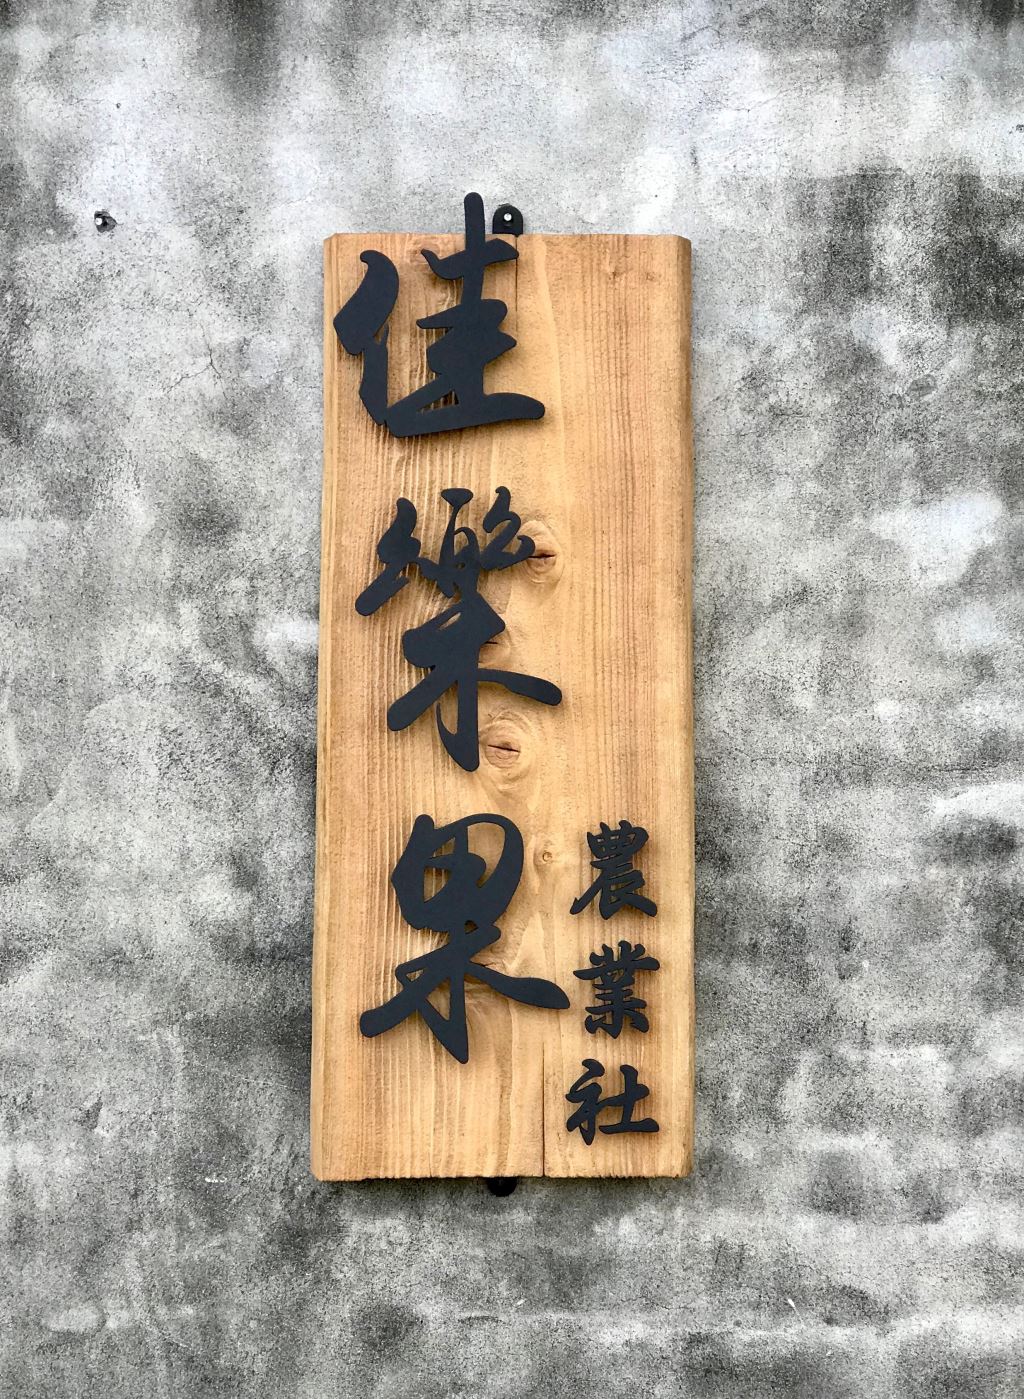 佳樂果
農業社